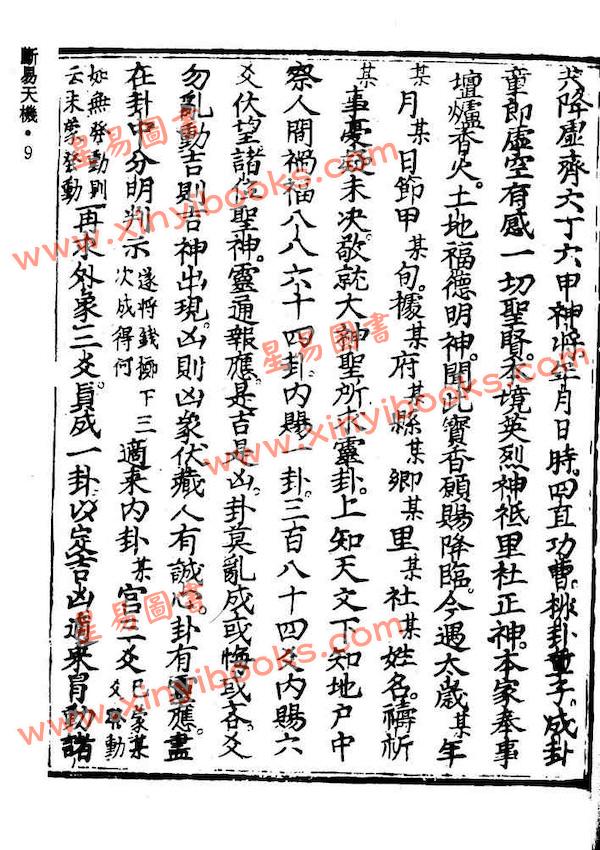 共降虛齊六丁六甲神將年月日時四直功曹排卦童子成卦
童郎虛空有感一切聖賢本境英烈神祇里社正神本家奉事
壇爐香火土地福德明神聞此寶香願賜降臨今遇太歲某年
某月某日節甲某旬據某府某縣某鄉某里某社某姓名禱祈
某事憂疑未決敬就大神聖所求靈卦上知天文下知地戶中
察人間禍福八八六十四卦內賜一卦三百八十四爻內賜六
爻伏望諸位聖神靈通報應是吉是凶卦莫亂成或悔或吝爻
勿亂動吉則吉神出現凶則凶象伏藏人有誠心卦有靈應盡
在卦中分明判示遂將錢擲下三次成得何適來內卦某宮三爻已蒙某爻發動
如無發動則云未蒙發動再求外象三爻貞成一卦以定吉凶適來胃動諸
斷易天機•9
星易圖書
www.xinyibooks.com
星易圖書
www.xinyibooks.com
星易圖書
www.xinyibooks.com
星易圖書
www.xinyibooks.com